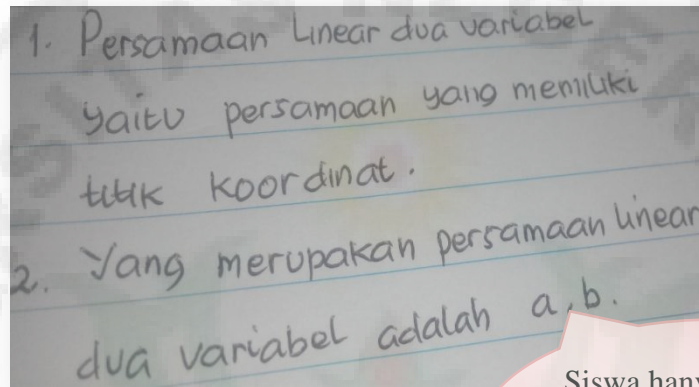 1. Persamaan Linear dua variabel
yaitu persamaan yang memiliki
titik koordinat.
2. Yang merupakan persamaan linear
dua variabel adalah a, b.
Siswa han